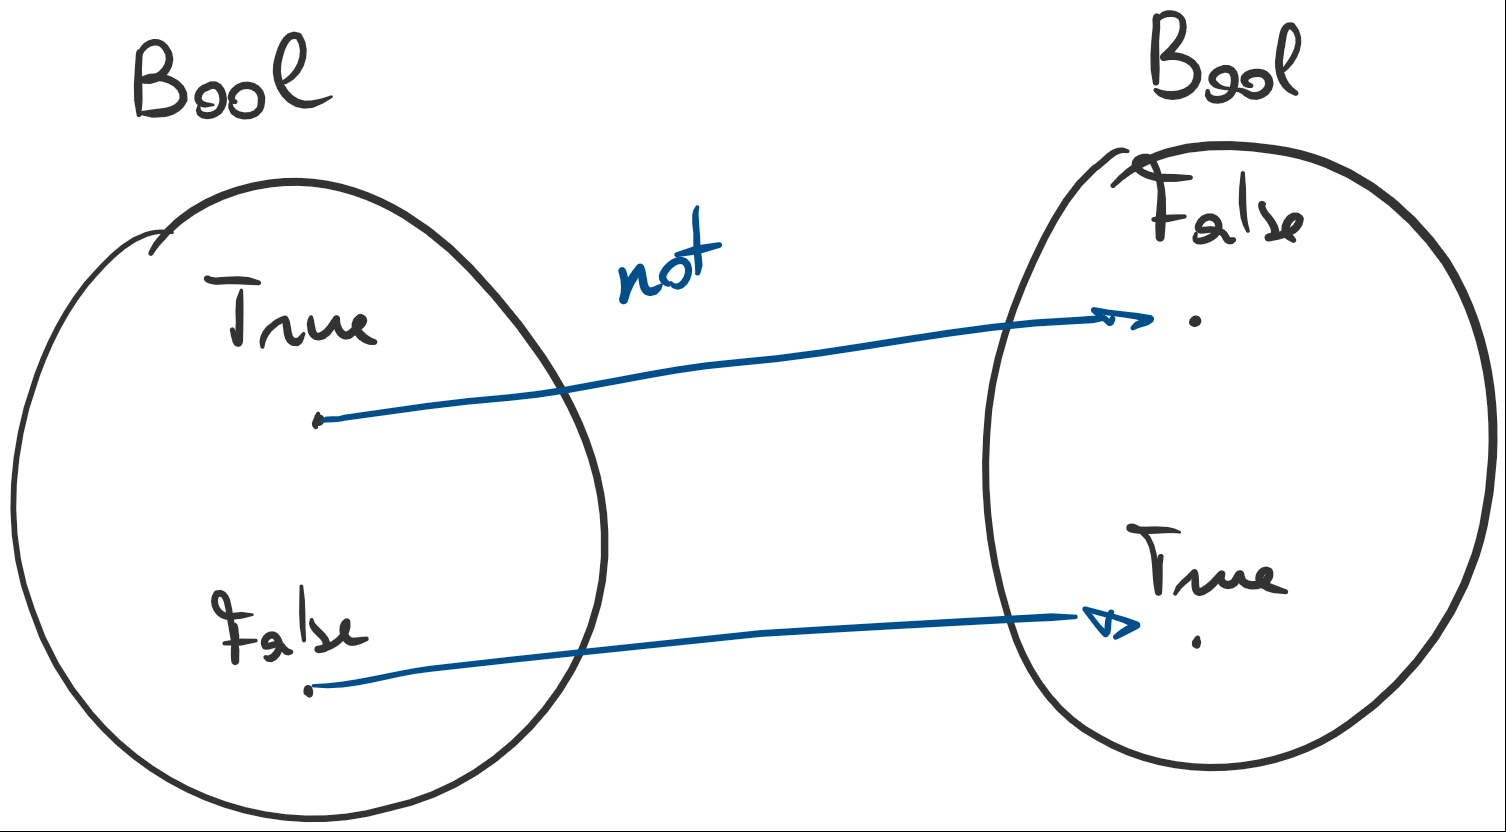 Bool
True
False
not
Bool
False
True